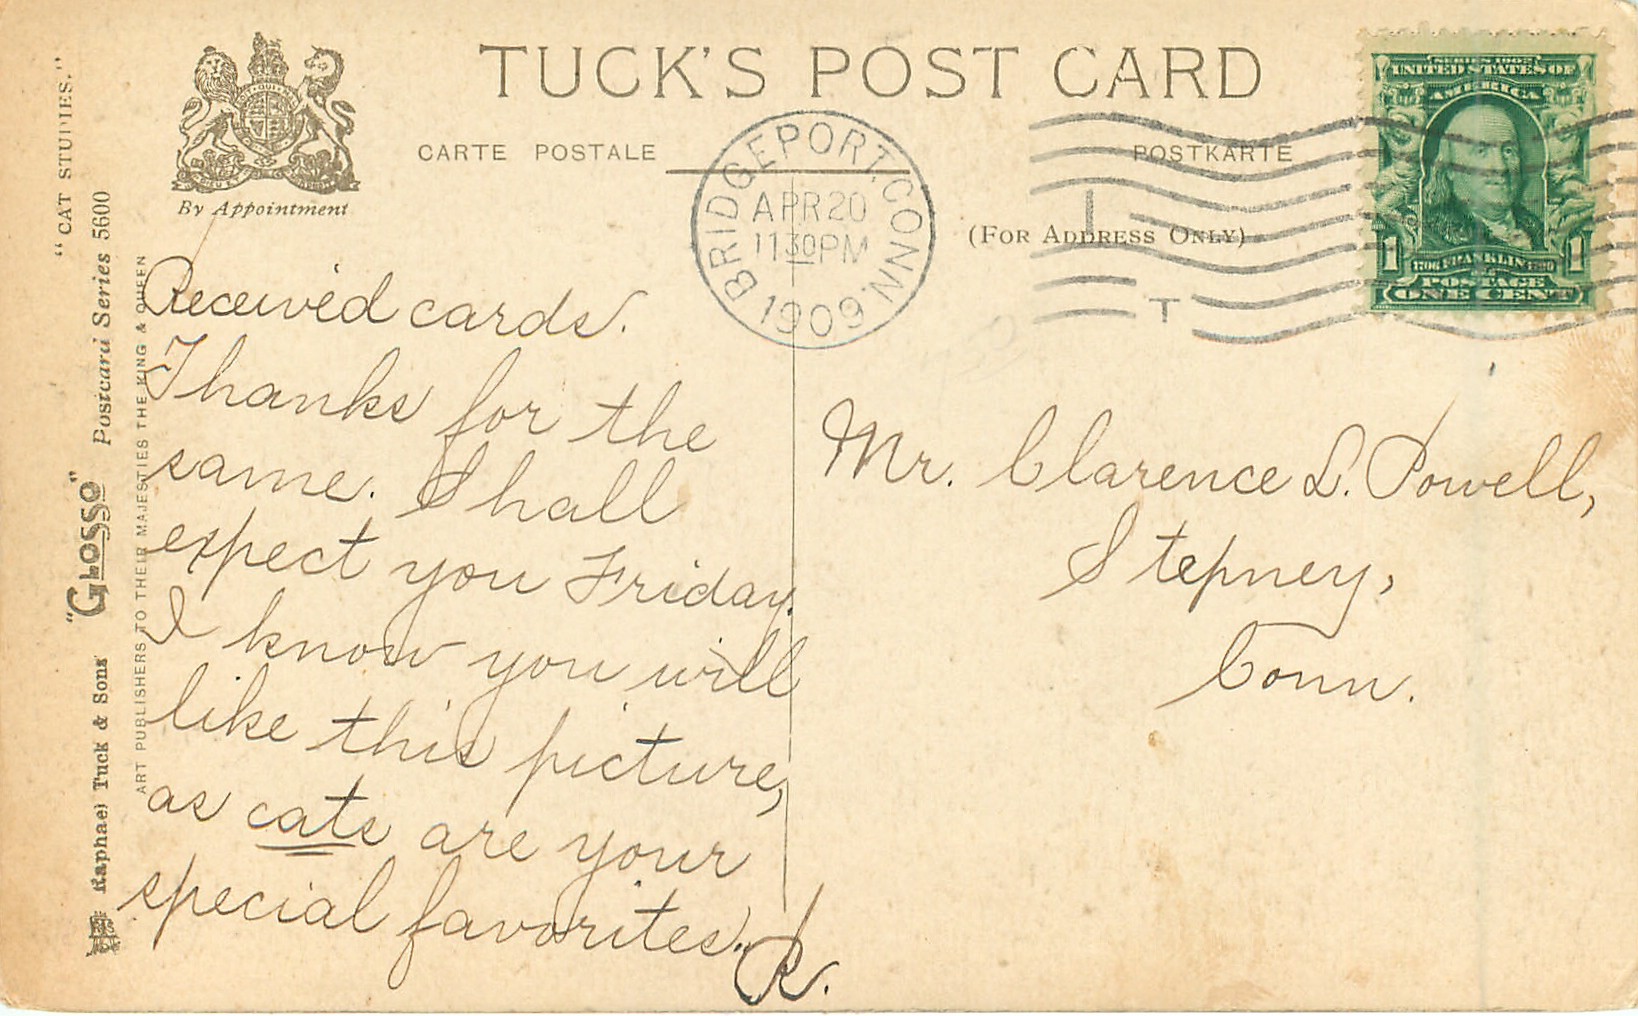 TUCK'S POST CARD
CARTE POSTALE
POSTKARTE
(FOR ADDRESS ONLY)
By Appointment
BRIDGEPORT, CONN.
APR 20
11 30 PM
1909
T
SERIES 1902
UNITED STATES OF
AMERICA
1 1
1706 FRANKLIN 1790
POSTAGE
ONE CENT
"CAT STUDIES."
Raphael Tuck & Sons' "GLOSSO" Postcard Series 5600
ART PUBLISHERS TO THEIR MAJESTIES THE KING & QUEEN
Received cards.
Thanks for the
same. Shall
expect you Friday.
I know you will
like this picture,
as cats are your
special favorites.
R.
Mr. Clarence L. Powell,
Stepney,
Conn.